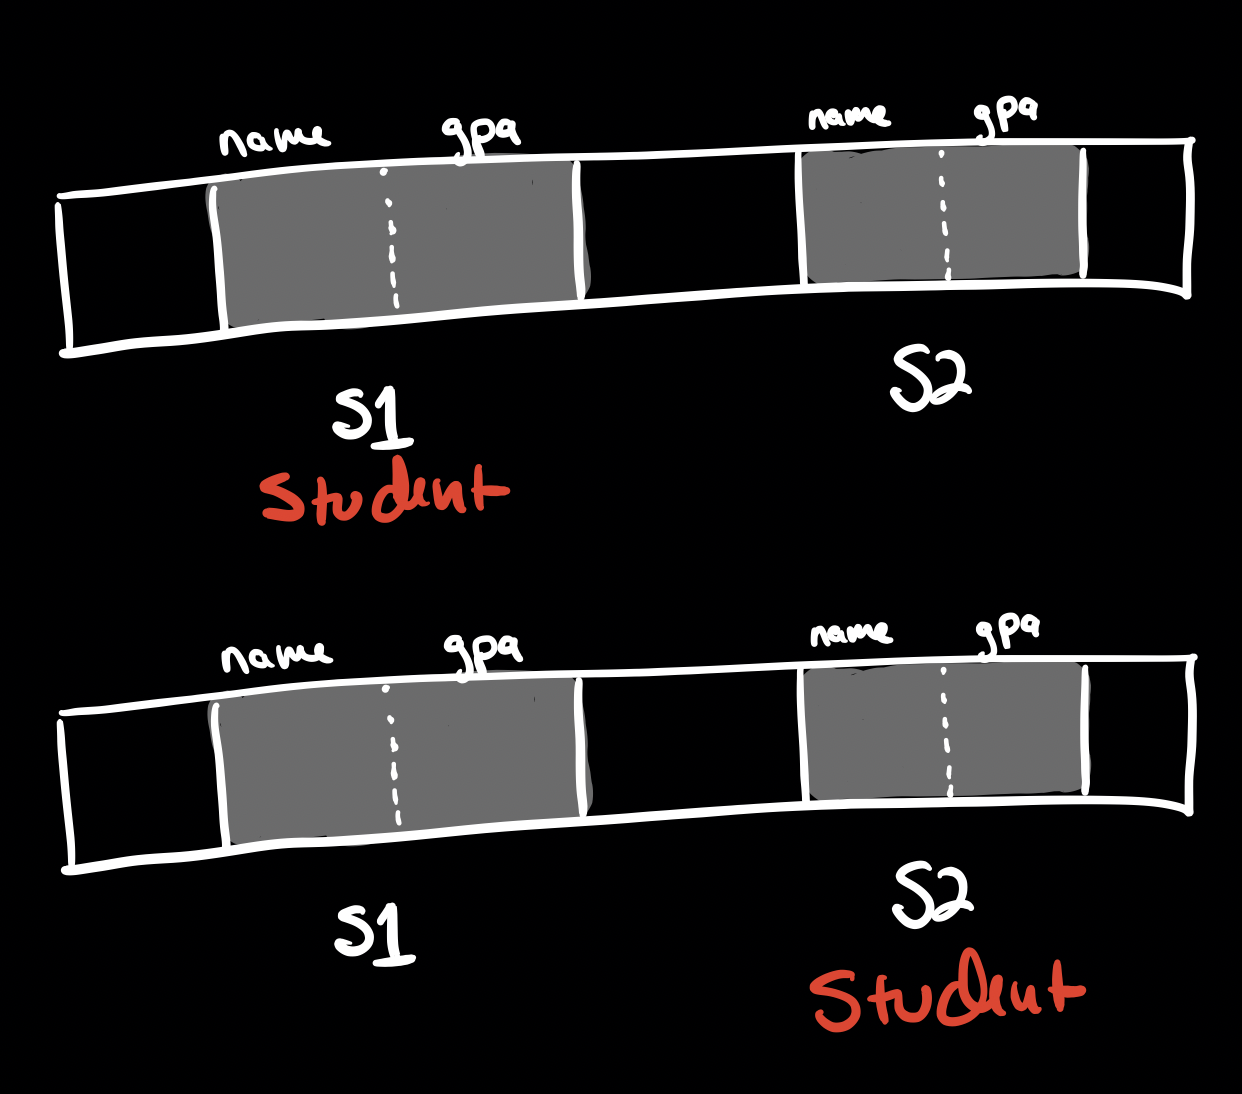 name gpa name gpa
S1 S2
Student
name gpa name gpa
S1 S2
Student